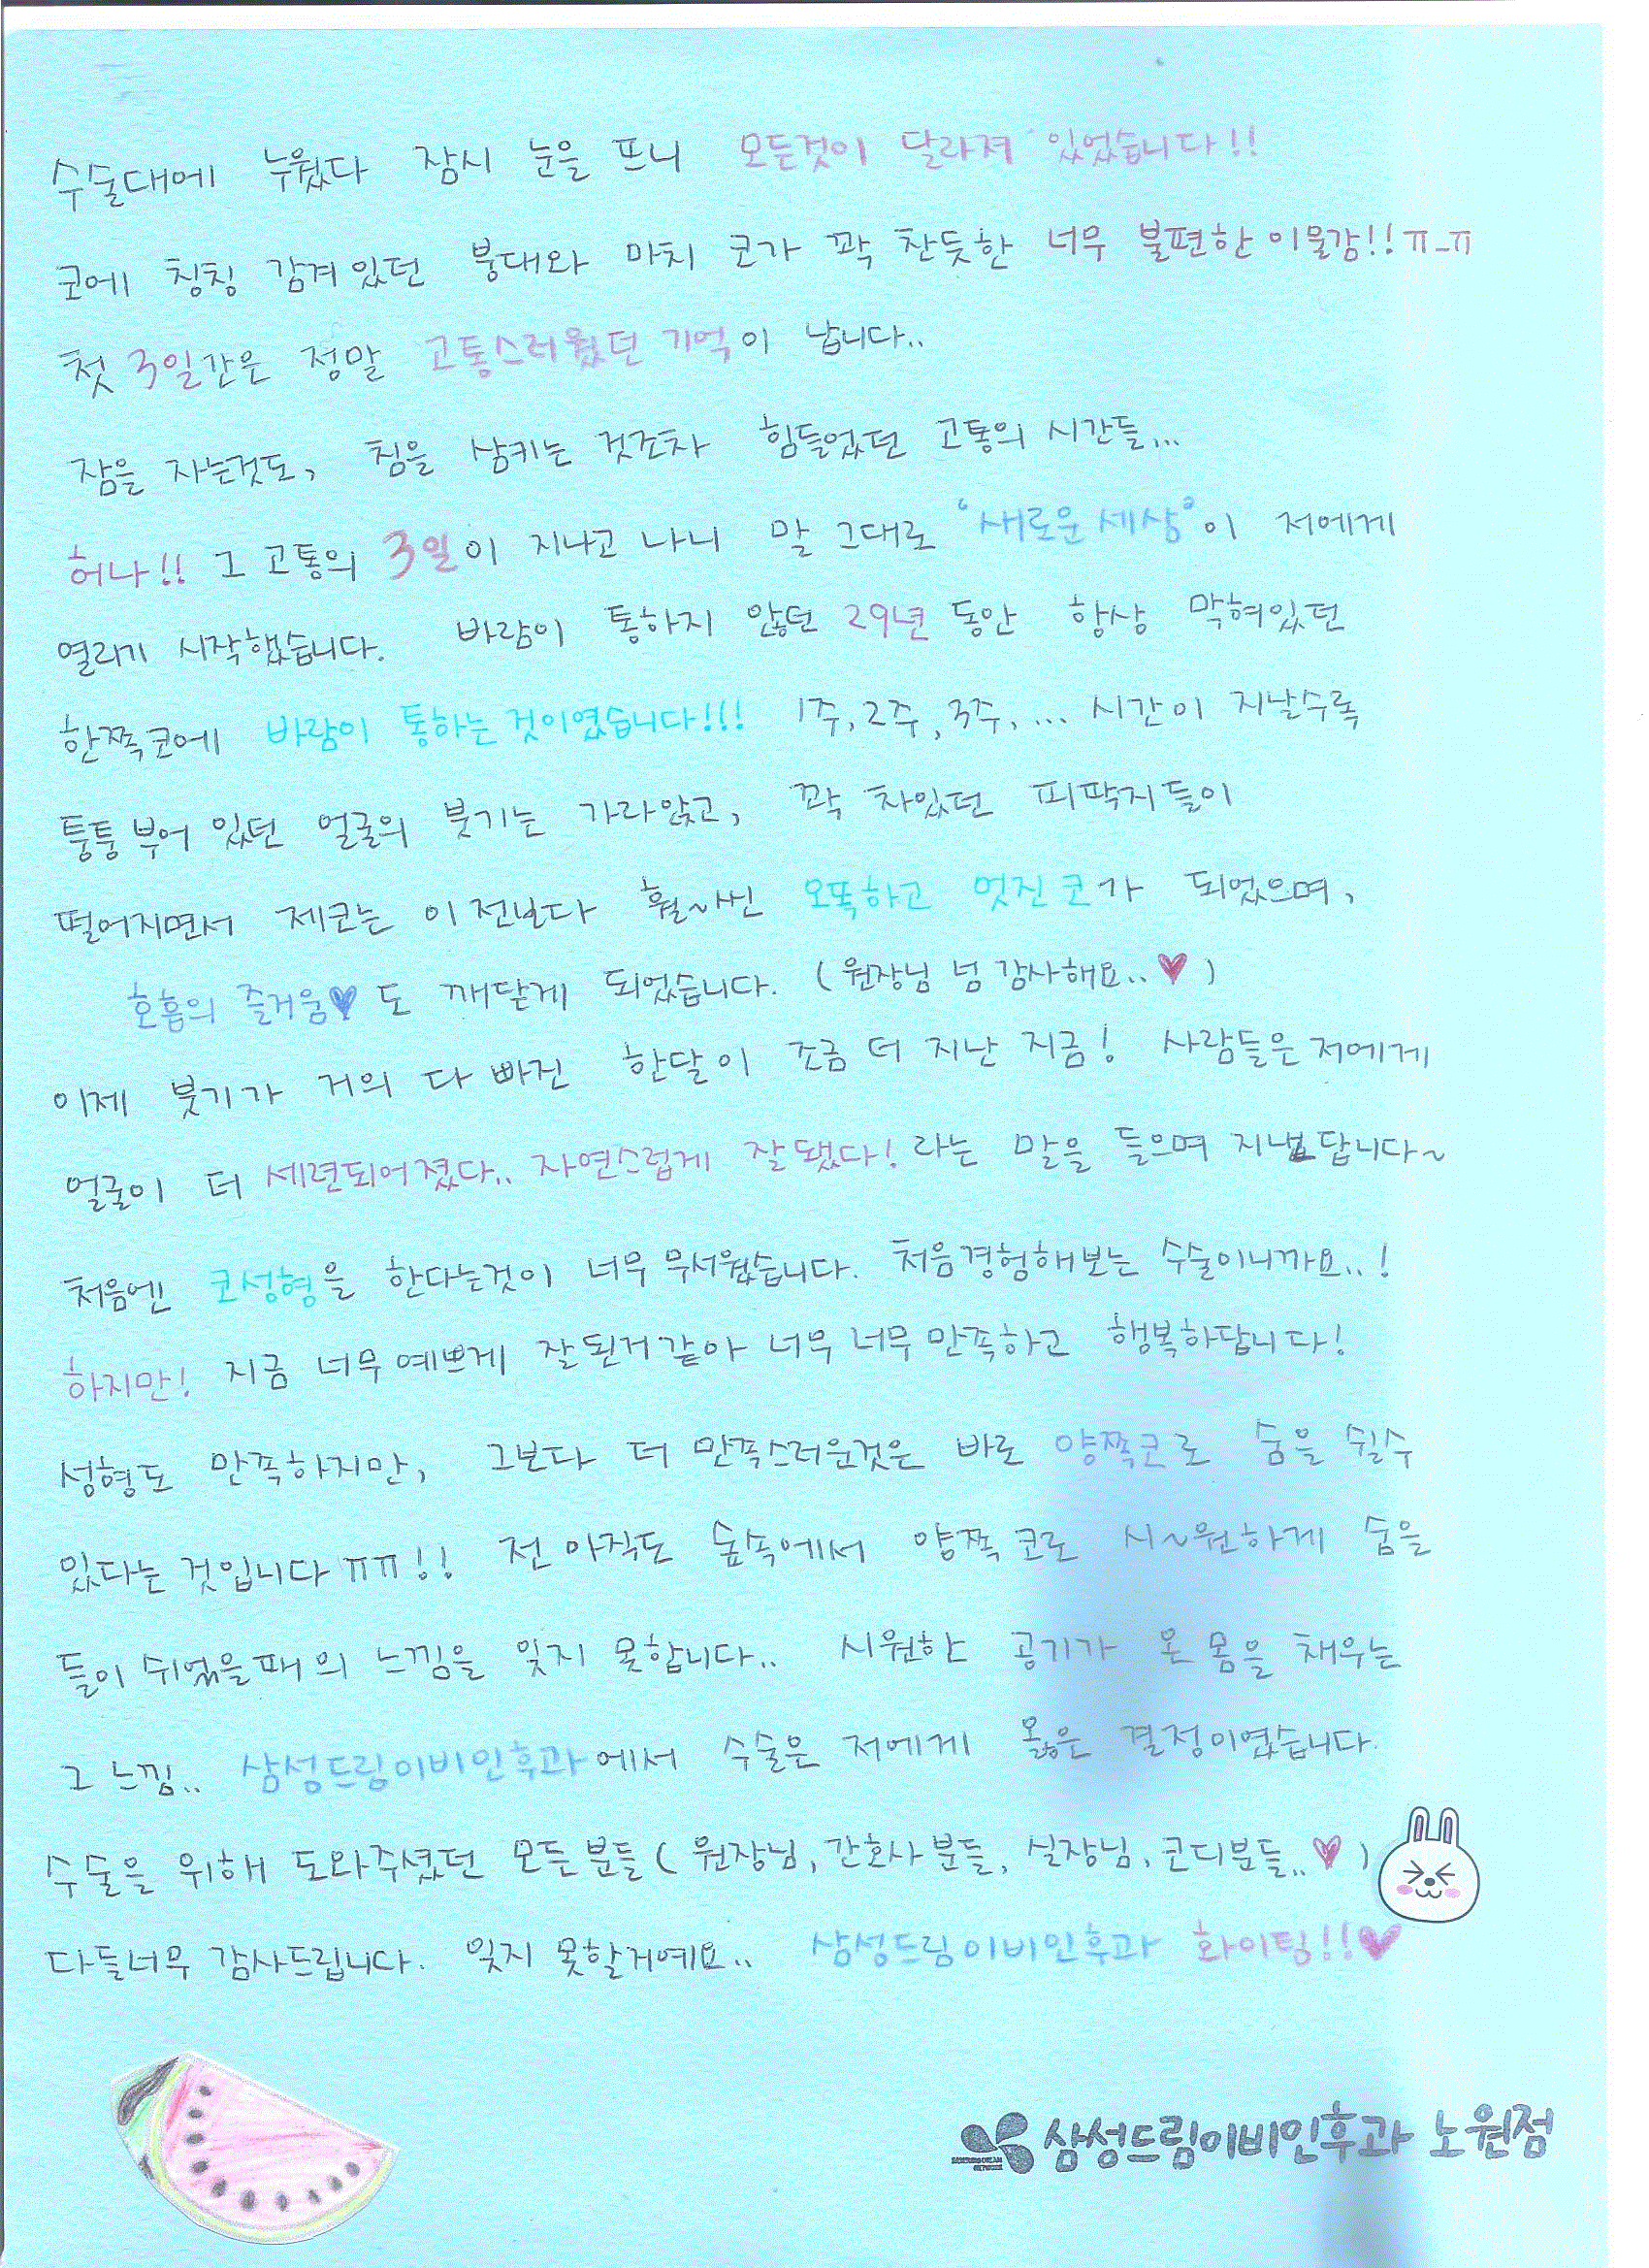 수술대에 누웠다 잠시 눈을 뜨니 모든것이 달라져 있었습니다!!
코에 칭칭 감겨있던 붕대와 마치 코가 꽉 찬듯한 너무 불편한 이물감!! ㅠ_ㅠ
첫 3일간은 정말 고통스러웠던 기억이 납니다..
잠을 자는것도, 침을 삼키는 것조차 힘들었던 고통의 시간들...
허나!! 그 고통의 3일이 지나고 나니 말 그대로 '새로운 세상'이 저에게
열리기 시작했습니다. 바람이 통하지 않던 29년 동안 항상 막혀있던
한쪽코에 바람이 통하는 것이였습니다!!! 1주, 2주, 3주, ... 시간이 지날수록
퉁퉁 부어 있던 얼굴의 붓기는 가라앉고, 꽉 차있던 피딱지들이
떨어지면서 제코는 이전보다 훨~씬 오똑하고 멋진 코가 되었으며,
호흡의 즐거움♥도 깨닫게 되었습니다. (원장님 넘 감사해요..♥)
이제 붓기가 거의 다 빠진 한달이 조금 더 지난 지금! 사람들은 저에게
얼굴이 더 세련되어졌다.. 자연스럽게 잘됐다! 라는 말을 들으며 지냅답니다~
처음엔 코성형을 한다는것이 너무 무서웠습니다. 처음경험해보는 수술이니까요..!
하지만! 지금 너무 예쁘게 잘된거같아 너무 너무 만족하고 행복하답니다!
성형도 만족하지만, 그보다 더 만족스러운것은 바로 양쪽코로 숨을 쉴수
있다는 것입니다 ㅠㅠ!! 전 아직도 숲속에서 양쪽 코로 시~원하게 숨을
들이 쉬었을때의 느낌을 잊지 못합니다.. 시원한 공기가 온 몸을 채우는
그 느낌.. 삼성드림이비인후과에서 수술은 저에게 옳은 결정이였습니다.
수술을 위해 도와주셨던 모든분들 (원장님, 간호사분들, 실장님, 코디분들..♥)
다들너무 감사드립니다. 잊지 못할거예요.. 삼성드림이비인후과 화이팅!!♥
삼성드림이비인후과 노원점